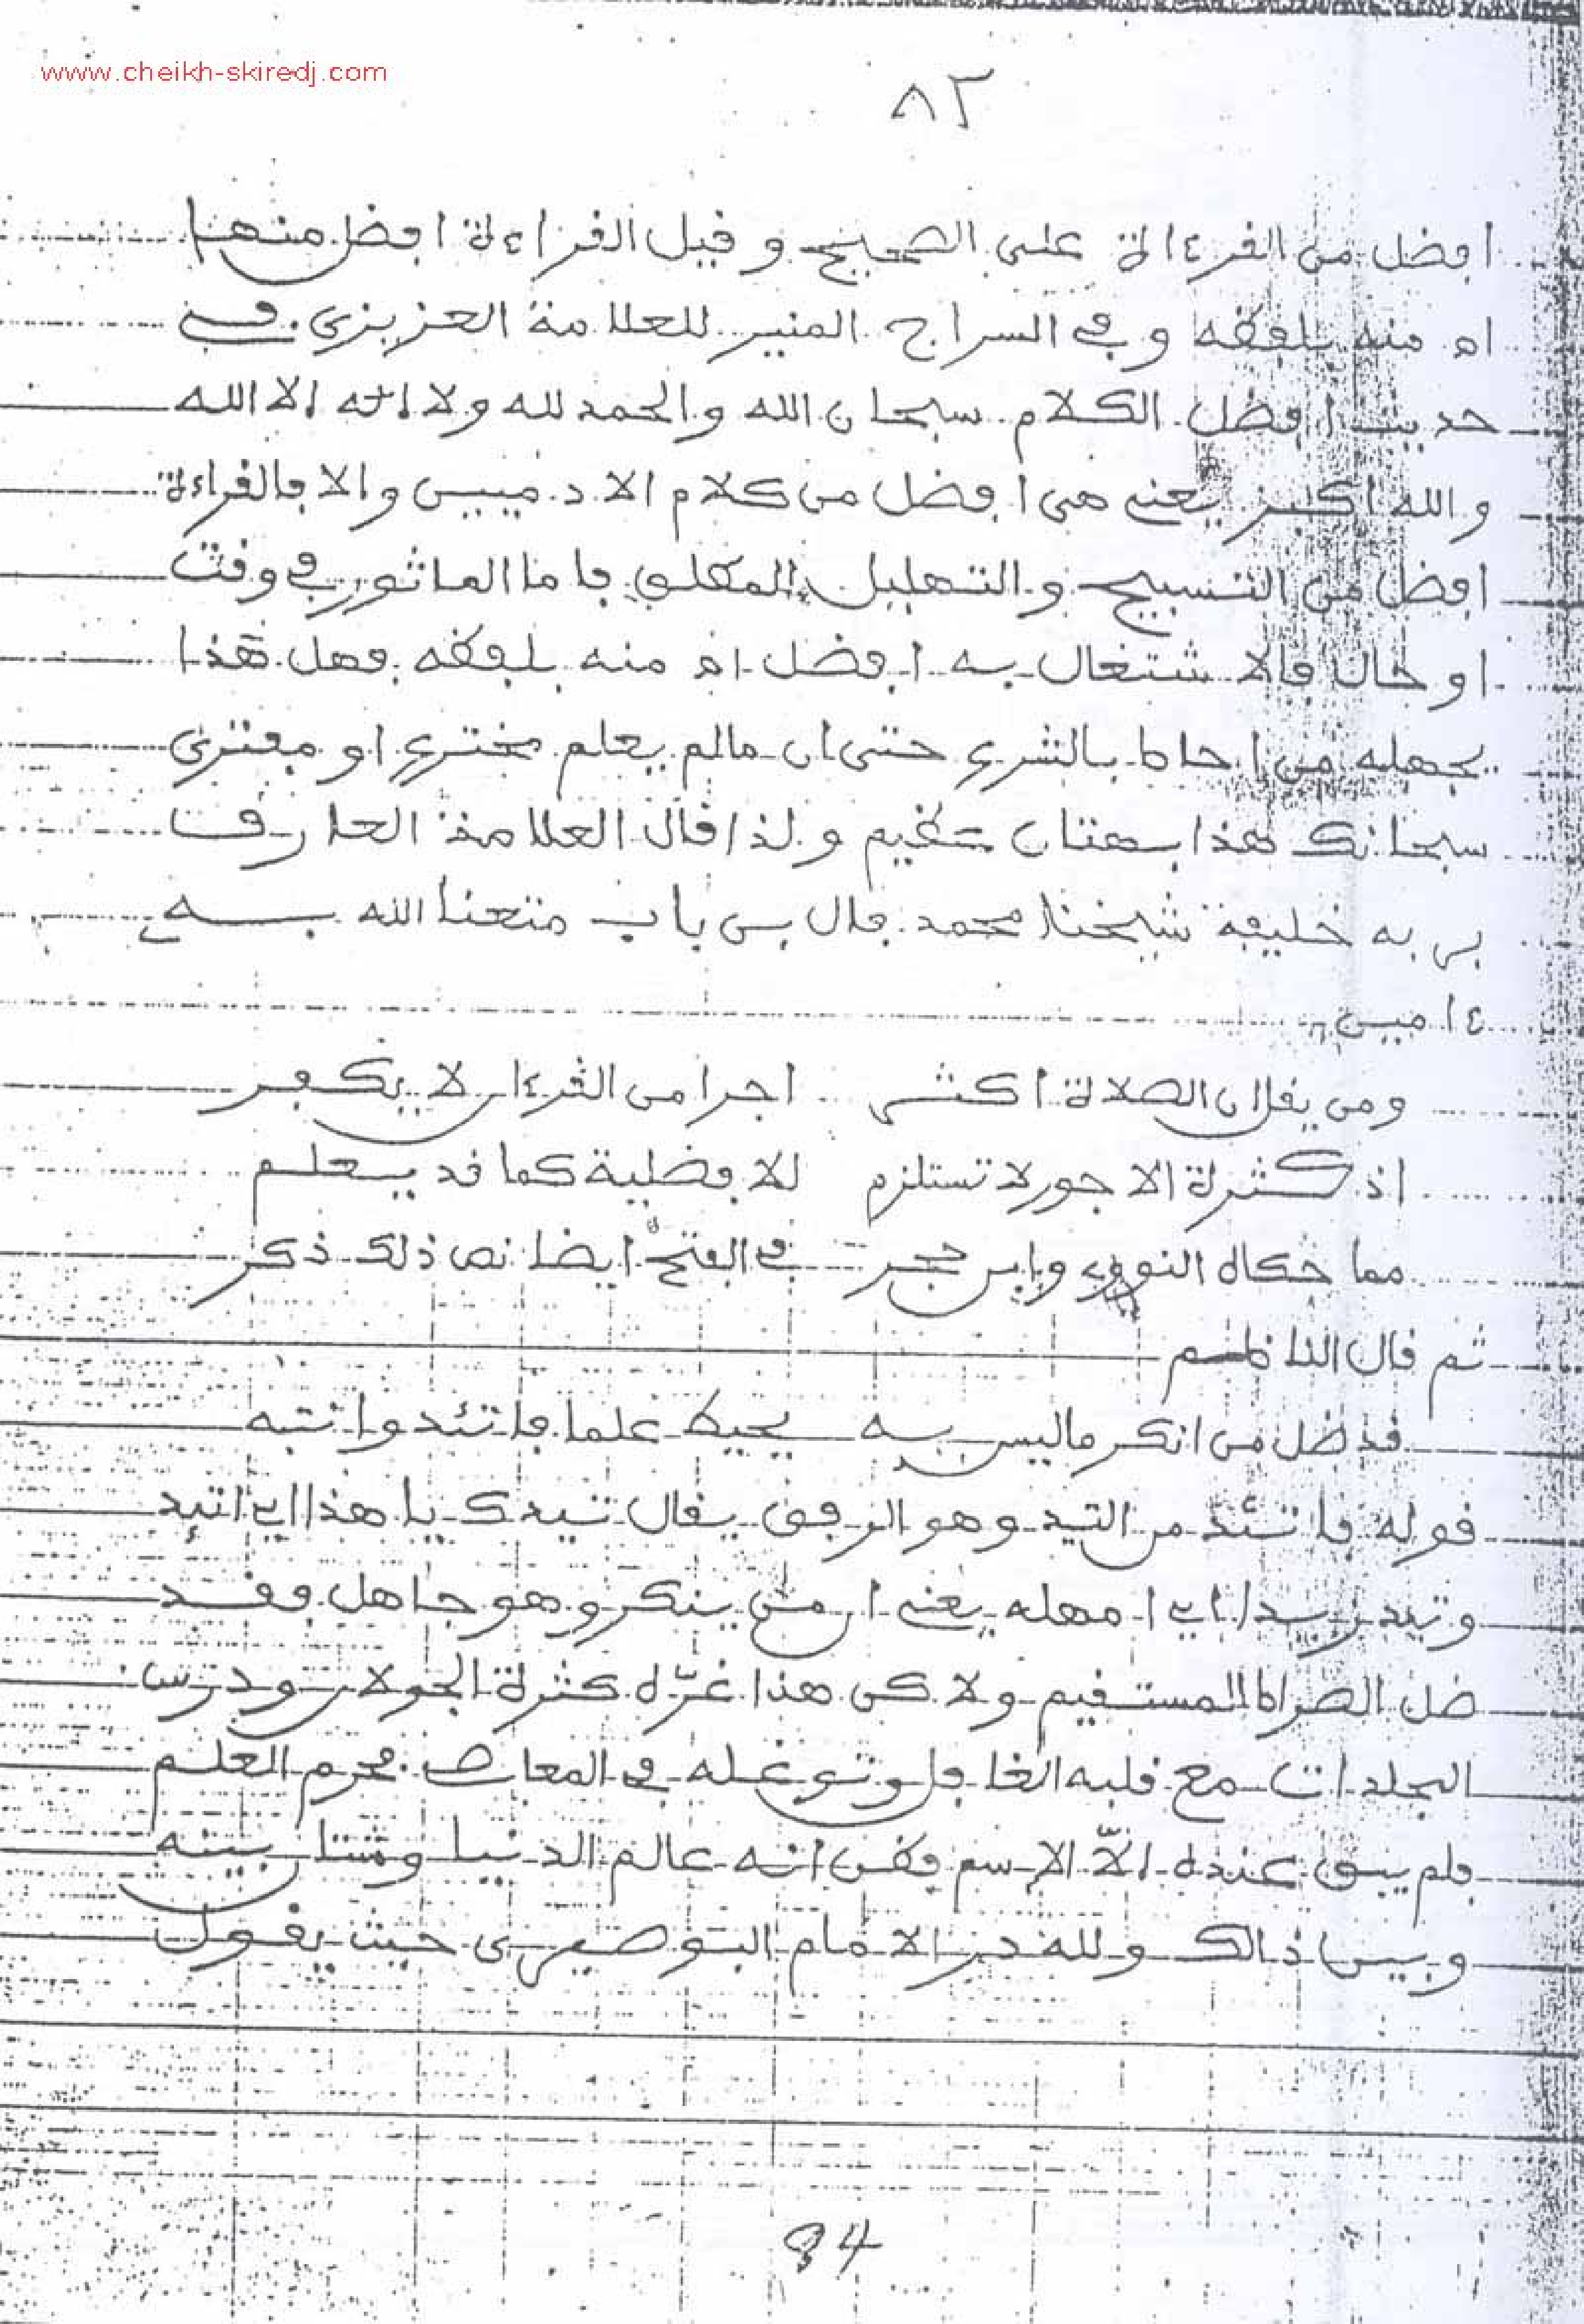 www.cheikh-skiredj.com
٨٢
افضل من القرءاة على الصحيح وقيل القراءة افضل منها
اه منه بلفظه وفي السراج المنير للعلامة العزيزي في
حديث افضل الكلام سبحان الله والحمد لله ولا اله الا الله
والله اكبر يعني هي افضل من كلام الادميين والا فالقراءة
افضل من التسبيح والتهليل المطلق فاما الماثور في وقت
او حال فالاشتغال به افضل اه منه بلفظه فهل هذا
يجهله من احاط بالشرع حتى ان مالم يعلم مخترع او مفترى
سبحانك هذا بهتان عظيم ولذا قال العلامة العارف
بربه خليفة شيخنا محمد فال بن باب متعنا الله به
ءامين
ومن يقل ان الصلاة اكثر اجرا من القرءان لا يكفر
اذ كثرة الاجور لا تستلزم للافضلية كما قد يعلم
مما حكاه النووي وابن حجر في الفتح ايضا نص ذلك ذكر
ثم قال الناظم
قد ضل من انكر ما ليس به يحيط علما فاتئد وانتبه
قوله فاتئد من التيد وهو الرفق يقال تيدك يا هذا اي اتئد
وتيد زيدا اي امهله يعني ان من ينكر وهو جاهل فقد
ضل الصراط المستقيم ولاكن هذا غرّه كثرة الجولان ودرس
المجلدات مع قلبه الغافل وتوغله في المعاصي فحرم العلم
فلم يبق عنده الاّ الاسم فظن انه عالم الدنيا وشتان بينه
وبين ذالك ولله در الامام البوصيري حيث يقول
84